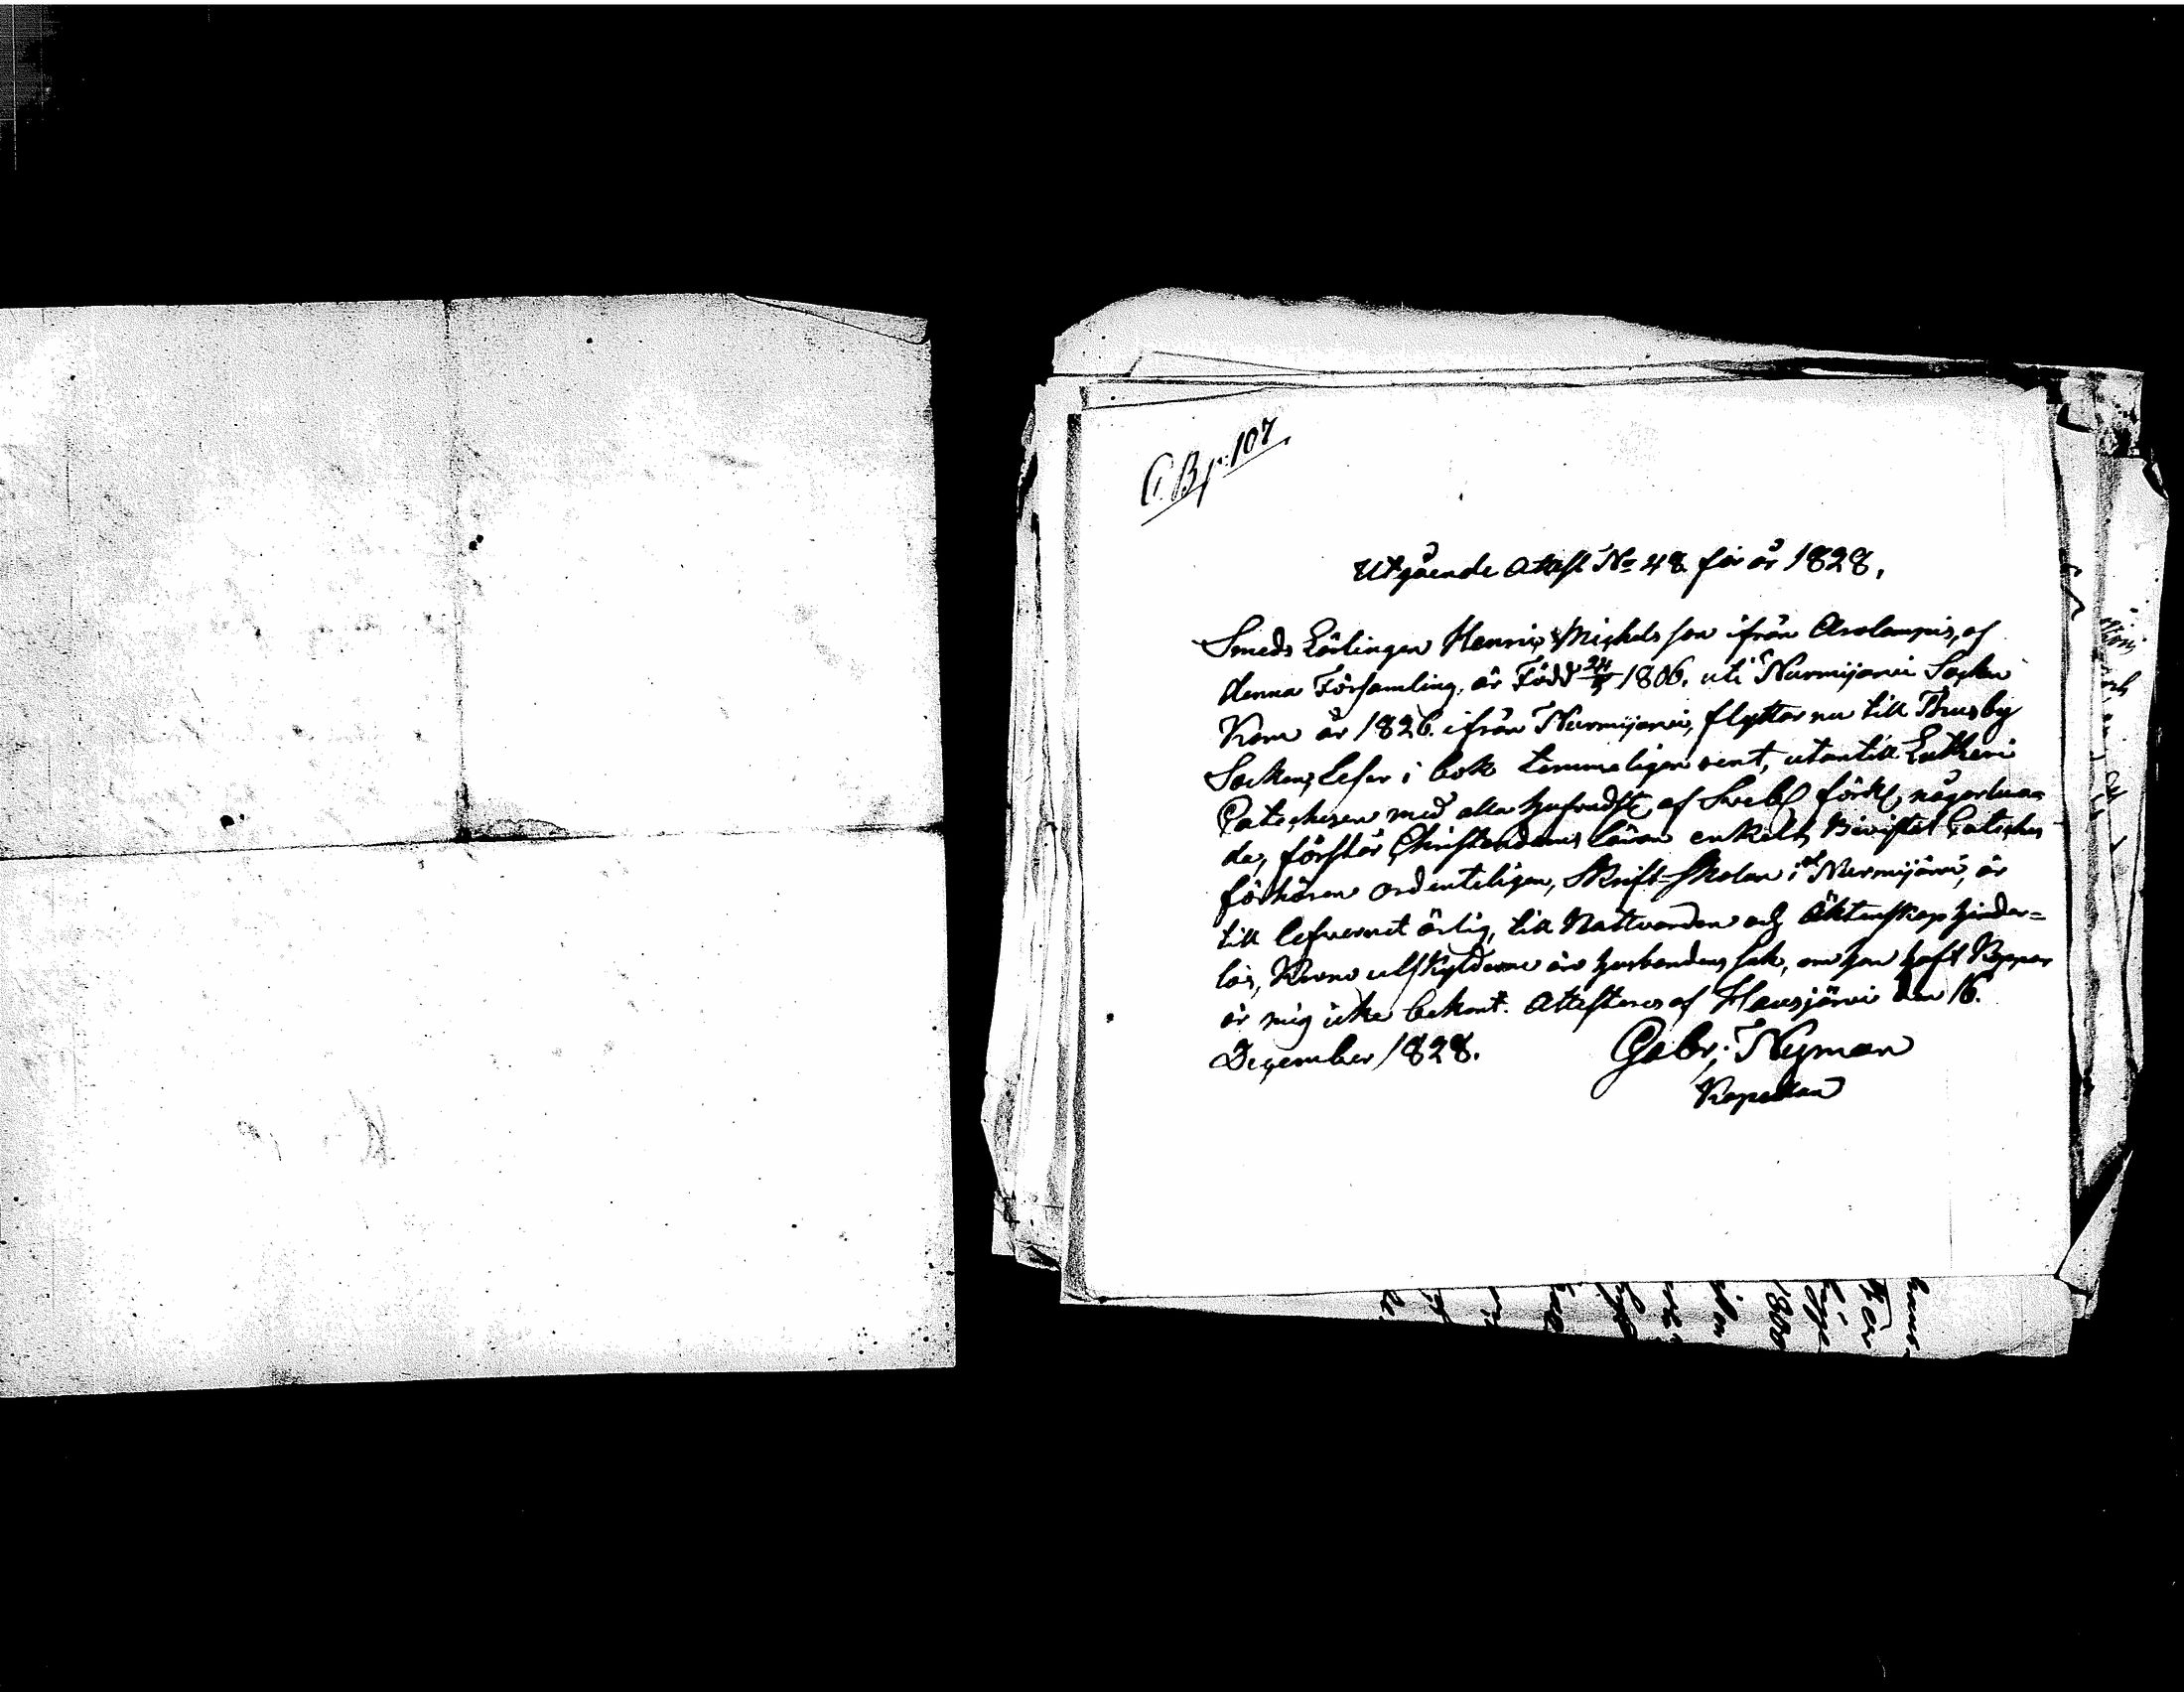 C.B. p. 107.
Utgående Attest No 48 för år 1828.
Smeds Lärlingen Henric Michelsson ifrån Arolampis, af
denna Församling, är Född 24/5 1806. uti Nurmijärvi Socken
Kom år 1826. ifrån Nurmijärvi, flyttar nu till Thusby
Socken, Läser i bok temmeligen rent, utantill Lutheri
Catechesen med alla Hufvudst af Sveb förkl någorlun
da, förstår Christendoms läran enkelt, Bivistat Catishes
förhören ordenteligen, Skrift-Skolan i Nurmijärvi, är
till lefvernet ärlig, till Nattvarden och Äktenskap hinder=
lös, Krono utskylderne äro husbondens sak, om han haft Koppor
är mig icke bekant. Attesteras af Hausjärvi den 16.
December 1828. Gabr: Nyman
Kapellan
1800